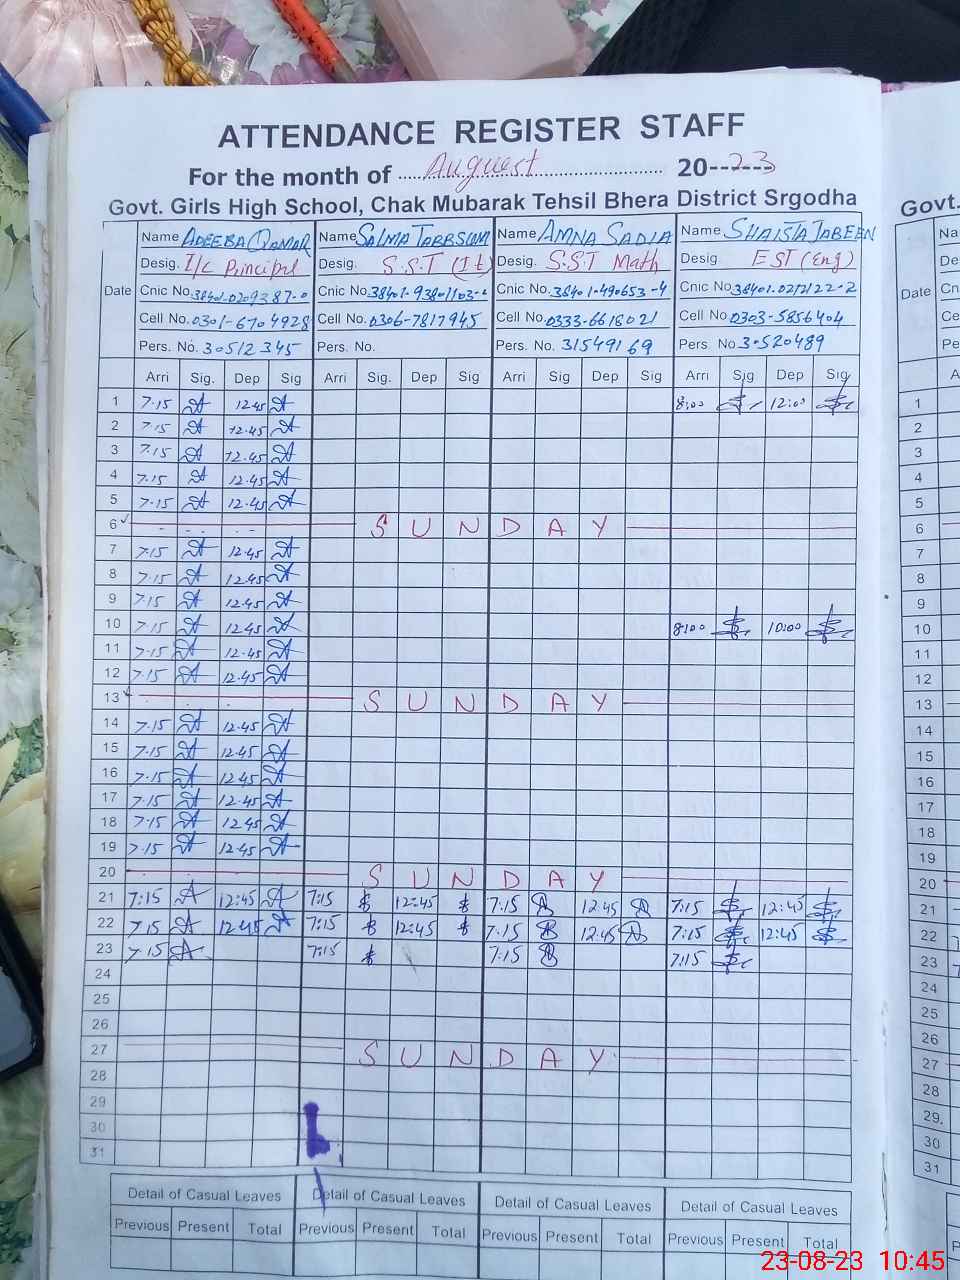 ATTENDANCE REGISTER STAFF
For the month of Auguest 20--23
Govt. Girls High School, Chak Mubarak Tehsil Bhera District Srgodha Govt.
Date Name ADEEBA QAMAR Name SALMA TABBSUM Name AMNA SADIA Name SHAISTA JABEEN Na
Desig. I/C Principal Desig. S.S.T (It) Desig. S.S.T Math Desig EST (Eng) De
Cnic No. 38401-0209387-0 Cnic No. Cnic No. 38401-490653-4 Cnic No. 38401-0212122-2 Cn
Cell No. 0301-6704928 Cell No. 0306-7817945 Cell No. 0333-6618021 Cell No 0303-5856404 Ce
Pers. No. 30512345 Pers. No. Pers. No. 31549169 Pers. No 30520489 Pe
Arri Sig. Dep Sig Arri Sig. Dep Sig Arri Sig Dep Sig Arri Sig Dep Sig A
1 7.15 12.45 8:00 12:00 1
2 7.15 12.45 2
3 7.15 12.45 3
4 7.15 12.45 4
5 7.15 12.45 5
6 SUNDAY 6
7 7.15 12.45 7
8 7.15 12.45 8
9 7.15 12.45 9
10 7.15 12.45 8:00 10:00 10
11 7.15 12.45 11
12 7.15 12.45 12
13 SUNDAY 13
14 7.15 12.45 14
15 7.15 12.45 15
16 7.15 12.45 16
17 7.15 12.45 17
18 7.15 12.45 18
19 7.15 12.45 19
20 SUNDAY 20
21 7:15 12:45 7:15 12:45 7:15 12:45 7:15 12:45 21
22 7.15 12.45 7:15 12:45 7.15 12.45 7:15 12:45 22
23 7.15 7:15 7:15 7:15 23
24 24
25 25
26 26
27 SUNDAY 27
28 28
29 29.
30 30
31 31
Detail of Casual Leaves Detail of Casual Leaves Detail of Casual Leaves Detail of Casual Leaves
Previous Present Total Previous Present Total Previous Present Total Previous Present Total P
23-08-23 10:45